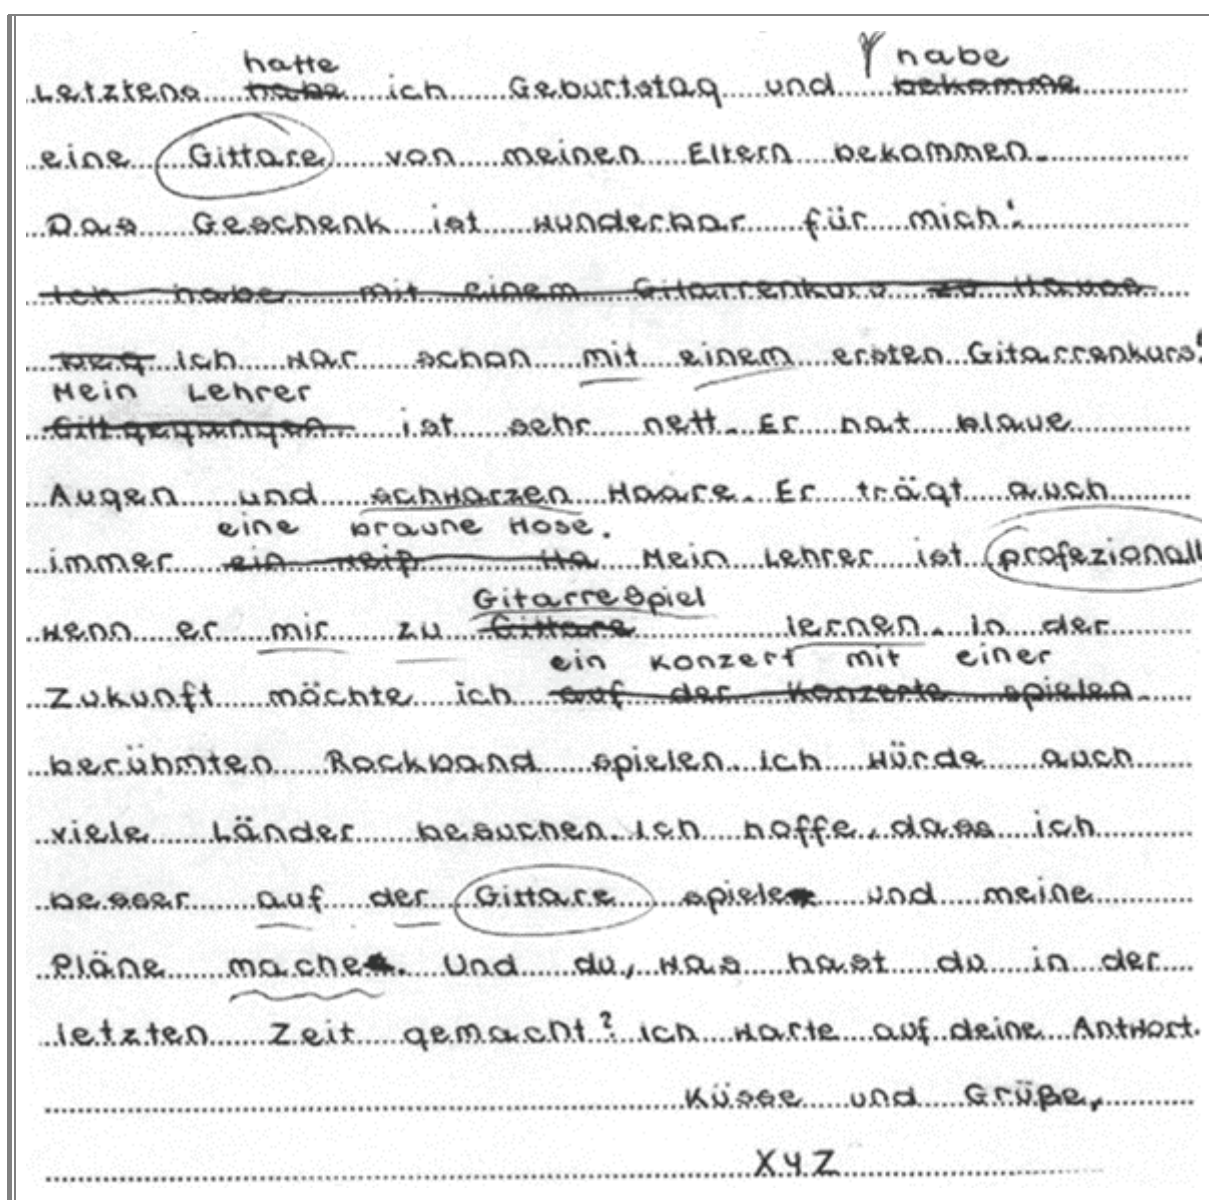 hatte habe
Letztens habe ich Geburtstag und bekomme
eine Gittare von meinen Eltern bekommen.
Das Geschenk ist wunderbar für mich!
Ich habe mit einem Gitarrenkurs zu Hause
beg Ich war schon mit einem ersten Gitarrenkurs!
Mein Lehrer
ist sehr nett. Er hat blaue
Augen und schwarzen Haare. Er trägt auch
eine braune Hose.
immer ein weiß Ha Mein Lehrer ist profezionall
GitarreSpiel
wenn er mir zu Gittare lernen. In der
ein Konzert mit einer
Zukunft möchte ich auf der Konzerte spielen
berühmten Rockband spielen. Ich würde auch
viele Länder besuchen. Ich hoffe, dass ich
besser auf der Gittare spiele und meine
Pläne mache. Und du, was hast du in der
letzten Zeit gemacht? Ich warte auf deine Antwort.
Küsse und Grüße,
XYZ